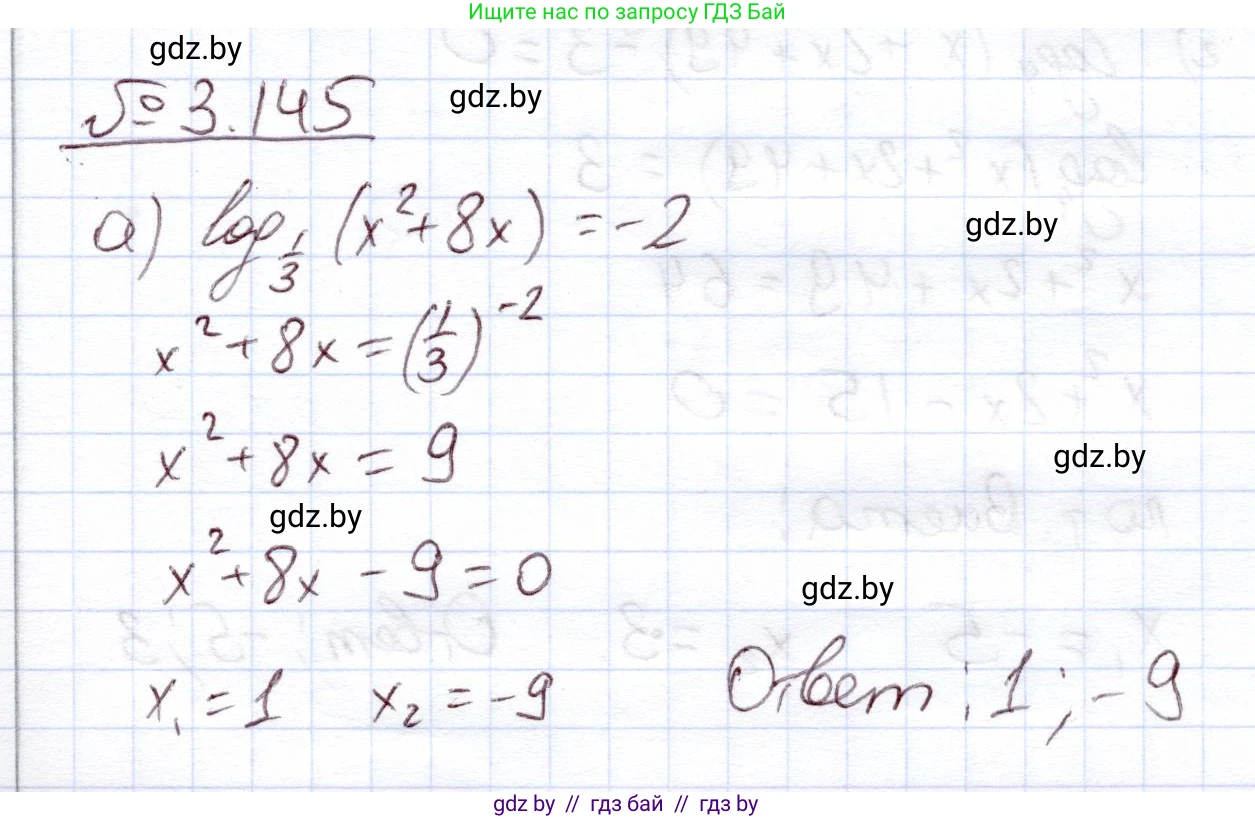 Ищите нас по запросу ГДЗ Бай
gdz.by
№ 3.145
gdz.by
а) log 1/3 (x² + 8x) = -2
gdz.by
x² + 8x = (1/3)⁻²
x² + 8x = 9
gdz.by
gdz.by
x² + 8x - 9 = 0
gdz.by
x₁ = 1 x₂ = -9
Ответ: 1; -9
gdz by // гдз бай // гдз by